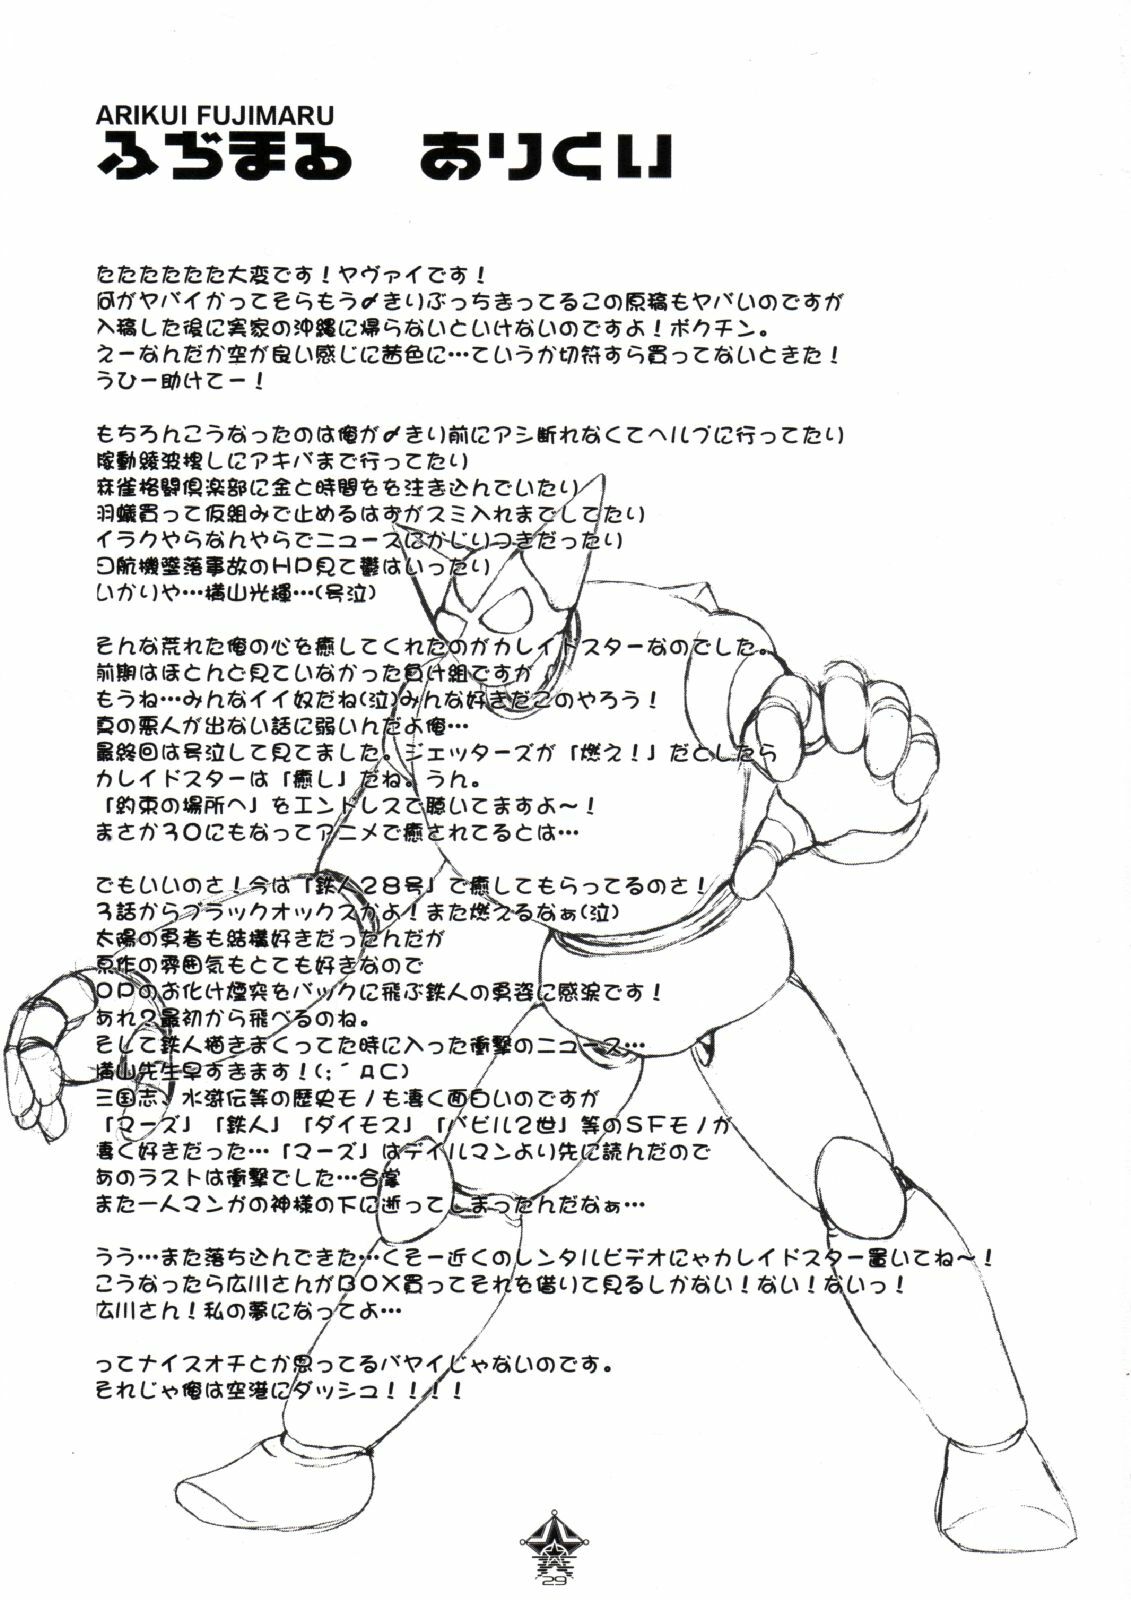 ARIKUI FUJIMARU
ふぢまる　ありくい
たたたたたた大変です！ヤヴァイです！
何がヤバイかってそらもう〆きりぶっちきってるこの原稿もヤバいのですが
入稿した後に実家の沖縄に帰らないといけないのですよ！ボクチン。
えーなんだか空が良い感じに茜色に…ていうか切符すら買ってないときた！
うひー助けてー！
もちろんこうなったのは俺が〆きり前にアシ断れなくてヘルプに行ってたり
稼動綾波捜しにアキバまで行ってたり
麻雀格闘倶楽部に金と時間をを注き込んでいたり
羽蟻買って仮組みで止めるはずがスミ入れまでしてたり
イラクやらなんやらでニュースにかじりつきだったり
日航機墜落事故のHP見て鬱はいったり
いかりや…横山光輝…(号泣)
そんな荒れた俺の心を癒してくれたのがカレイドスターなのでした。
前期はほとんど見ていなかった負け組ですが
もうね…みんなイイ奴だね(泣)みんな好きだこのやろう！
真の悪人が出ない話に弱いんだよ俺…
最終回は号泣して見てました。ジェッターズが「燃え！」だとしたら
カレイドスターは「癒し」だね。うん。
「約束の場所へ」をエンドレスで聴いてますよ〜！
まさか30にもなってアニメで癒されてるとは…
でもいいのさ！今は「鉄人28号」で癒してもらってるのさ！
3話からブラックオックスかよ！また燃えるなぁ(泣)
太陽の勇者も結構好きだったんだが
原作の雰囲気もとても好きなので
OPのお化け煙突をバックに飛ぶ鉄人の勇姿に感涙です！
あれ？最初から飛べるのね。
そして鉄人描きまくってた時に入った衝撃のニュース…
横山先生早すきます！(；´дC)
三国志、水滸伝等の歴史モノも凄く面白いのですが
「マーズ」「鉄人」「ダイモス」「バビル2世」等のSFモノが
凄く好きだった…「マーズ」はデイルマンより先に読んだので
あのラストは衝撃でした…合掌
また一人マンガの神様の下に逝ってしまったんだなぁ…
うう…また落ち込んできた…くそー近くのレンタルビデオにゃカレイドスター置いてね〜！
こうなったら広川さんがBOX買ってそれを借りて見るしかない！ない！ないっ！
広川さん！私の夢になってよ…
ってナイスオチとか思ってるバヤイじゃないのです。
それじゃ俺は空港にダッシュ！！！！
29